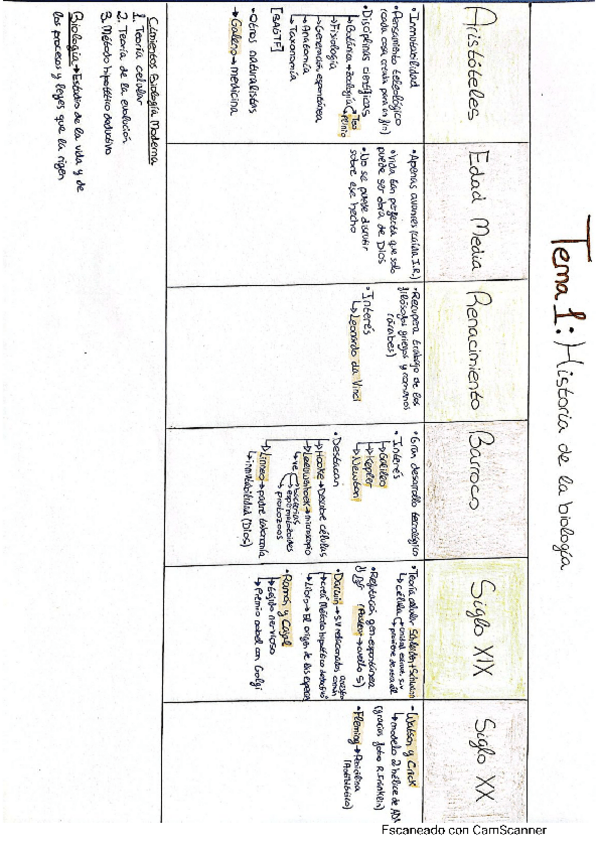 Tema 1: Historia de la biología
Aristóteles
• Inmutabilidad
• Pensamiento teleológico
(cada cosa creada para un fin)
• Disciplinas científicas
↳ Botánica → Zoología
↳ Fisiología
↳ Generación espontánea
↳ Anatomía
↳ Taxonomía
[BAGTF]
• Otros naturalistas
↳ Galeno → medicina
Edad Media
• Apenas avances (caída I.R.)
• Vida tan perfecta que solo
puede ser obra de Dios
• No se puede discutir
sobre ese hecho
Renacimiento
• Recupera trabajo de los
filósofos griegos y romanos
(árabes)
• Interés
↳ Leonardo da Vinci
Barroco
• Gran desarrollo tecnológico
• Interés
↳ Galileo
↳ Kepler
↳ Newton
• Destacan
↳ Hooke → Descubre células
↳ Leeuwenhoek → microscopio
↳ ve
bacterias
espermatozoides
protozoos
↳ Linneo → padre taxonomía
↳ inmutabilidad (Dios)
Siglo XIX
• Teoría celular Schleiden + Schwann
↳ célula
• Refutación gen. espontánea
(Pasteur → cuello S)
• Darwin → s.v relacionados
↳ creó Método hipotético deductivo
↳ Libro → El origen de las especies
• Ramón y Cajal
↳ tejido nervioso
↳ Premio nobel con Golgi
Siglo XX
• Watson y Crick
↳ modelo 2 hélice de ADN
(gracias foto R. Franklin)
• Fleming → Penicilina
(Antibiótico)
Cimientos Biología Moderna
1. Teoría celular
2. Teoría de la evolución
3. Método hipotético deductivo
Biología → Estudios de la vida y de
los procesos y leyes que la rigen
Escaneado con CamScanner